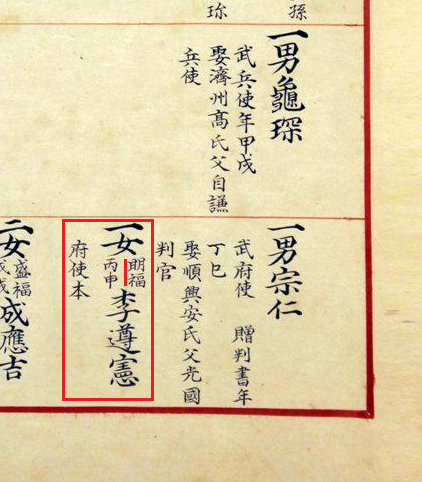 孫
珎
一男龜琛
武兵使年甲戌
娶濟州高氏父自謙
兵使
一男宗仁
武府使 贈判書年
丁巳
娶順興安氏父光國
判官
一女 朙福 丙申 李遵憲
府使本
二女 盛福 成應吉